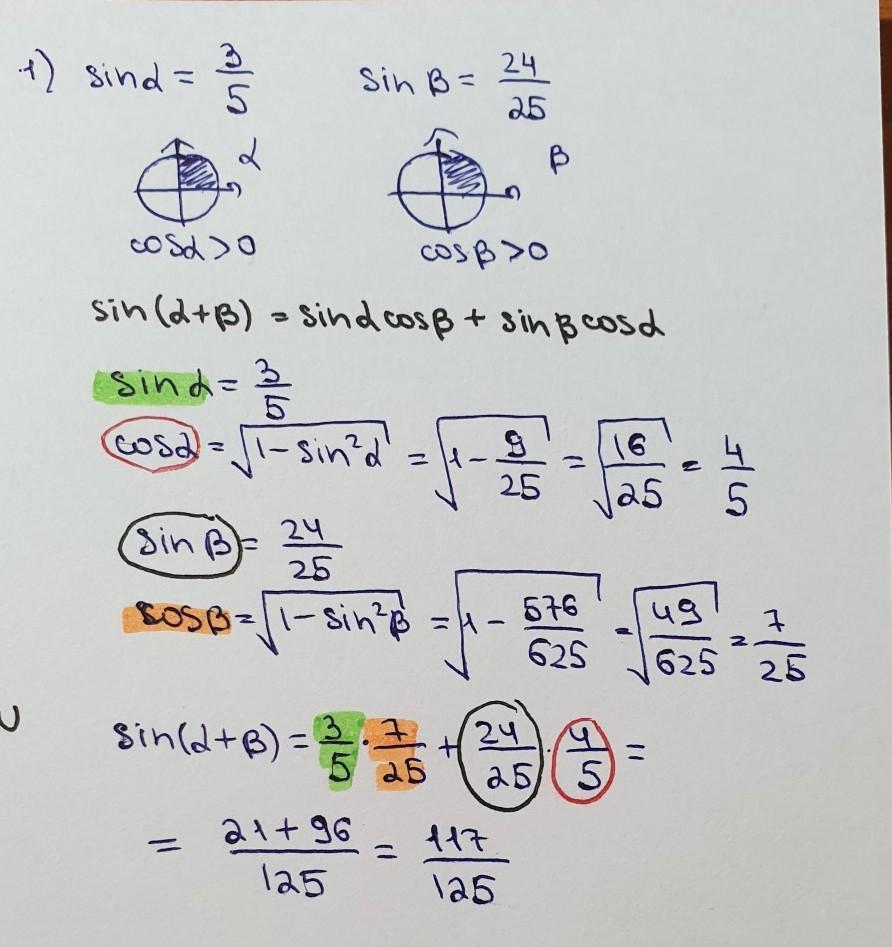 1) sinα = 3/5 sinβ = 24/25
α β
cosα>0 cosβ>0
sin(α+β) = sinαcosβ + sinβcosα
sinα = 3/5
cosα = √(1-sin²α) = √(1-9/25) = √(16/25) = 4/5
sinβ = 24/25
cosβ = √(1-sin²β) = √(1-576/625) = √(49/625) = 7/25
sin(α+β) = 3/5 · 7/25 + 24/25 · 4/5 =
= (21+96)/125 = 117/125